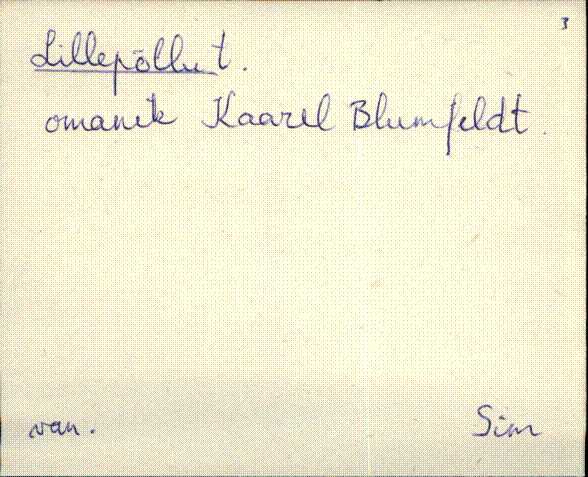 3
Lillepõllu t.
omanik Kaarel Blumfeldt.
van. Sim